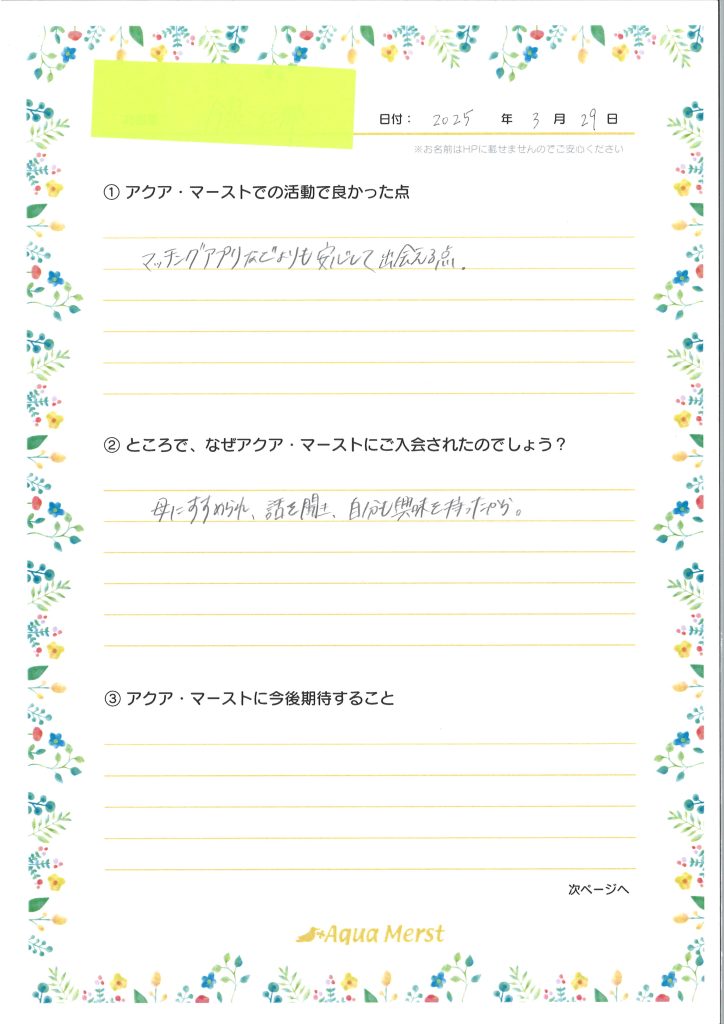 日付： 2025 年 3 月 29 日
※お名前はHPに載せませんのでご安心ください
① アクア・マーストでの活動で良かった点
マッチングアプリなどよりも安心して出会える点.
② ところで、なぜアクア・マーストにご入会されたのでしょう？
母にすすめられ、話を聞き、自分も興味を持ったから。
③ アクア・マーストに今後期待すること
次ページへ
Aqua Merst